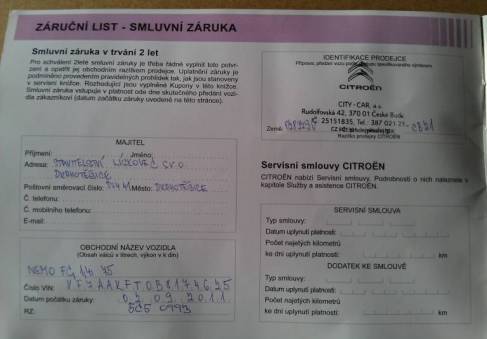 ZÁRUČNÍ LIST - SMLUVNÍ ZÁRUKA
Smluvní záruka v trvání 2 let
Pro schválení 2leté smluvní záruky je třeba řádně vyplnit toto potvr-
zení a opatřit jej obchodním razítkem prodejce. Uplatnění záruky je
podmíněno provedením pravidelných prohlídek tak, jak jsou stanoveny
v servisní knížce. Rozhodující jsou vyplněné Kupony v této knížce.
Smluvní záruka vstupuje v platnost ode dne skutečného předání vozi-
dla zákazníkovi (datum začátku záruky uvedené na této stránce).
MAJITEL
Příjmení: Jméno:
Adresa: STAVITELSTVÍ
Poštovní směrovací číslo: Město:
Č. telefonu:
Č. mobilního telefonu:
E-mail:
OBCHODNÍ NÁZEV VOZIDLA
(Obsah válců v litrech, výkon v k din)
NEMO
Číslo VIN:
Datum počátku záruky: 02 09 2011
RZ:
IDENTIFIKACE PRODEJCE
CITROËN
CITY - CAR, a.s.
Rudolfovská 42, 370 01 České Budě
25151835, Tel.: 387 021 21
Země:
Razítko prodejce CITROËN
Servisní smlouvy CITROËN
CITROËN nabízí Servisní smlouvy. Podrobnosti o nich naleznete v
kapitole Služby a asistence CITROËN.
SERVISNÍ SMLOUVA
Typ smlouvy:
Datum uplynutí platnosti:
Počet najetých kilometrů
ke dni uplynutí platnosti: km
DODATEK KE SMLOUVĚ
Typ smlouvy:
Datum uplynutí platnosti:
Počet najetých kilometrů
ke dni uplynutí platnosti: km